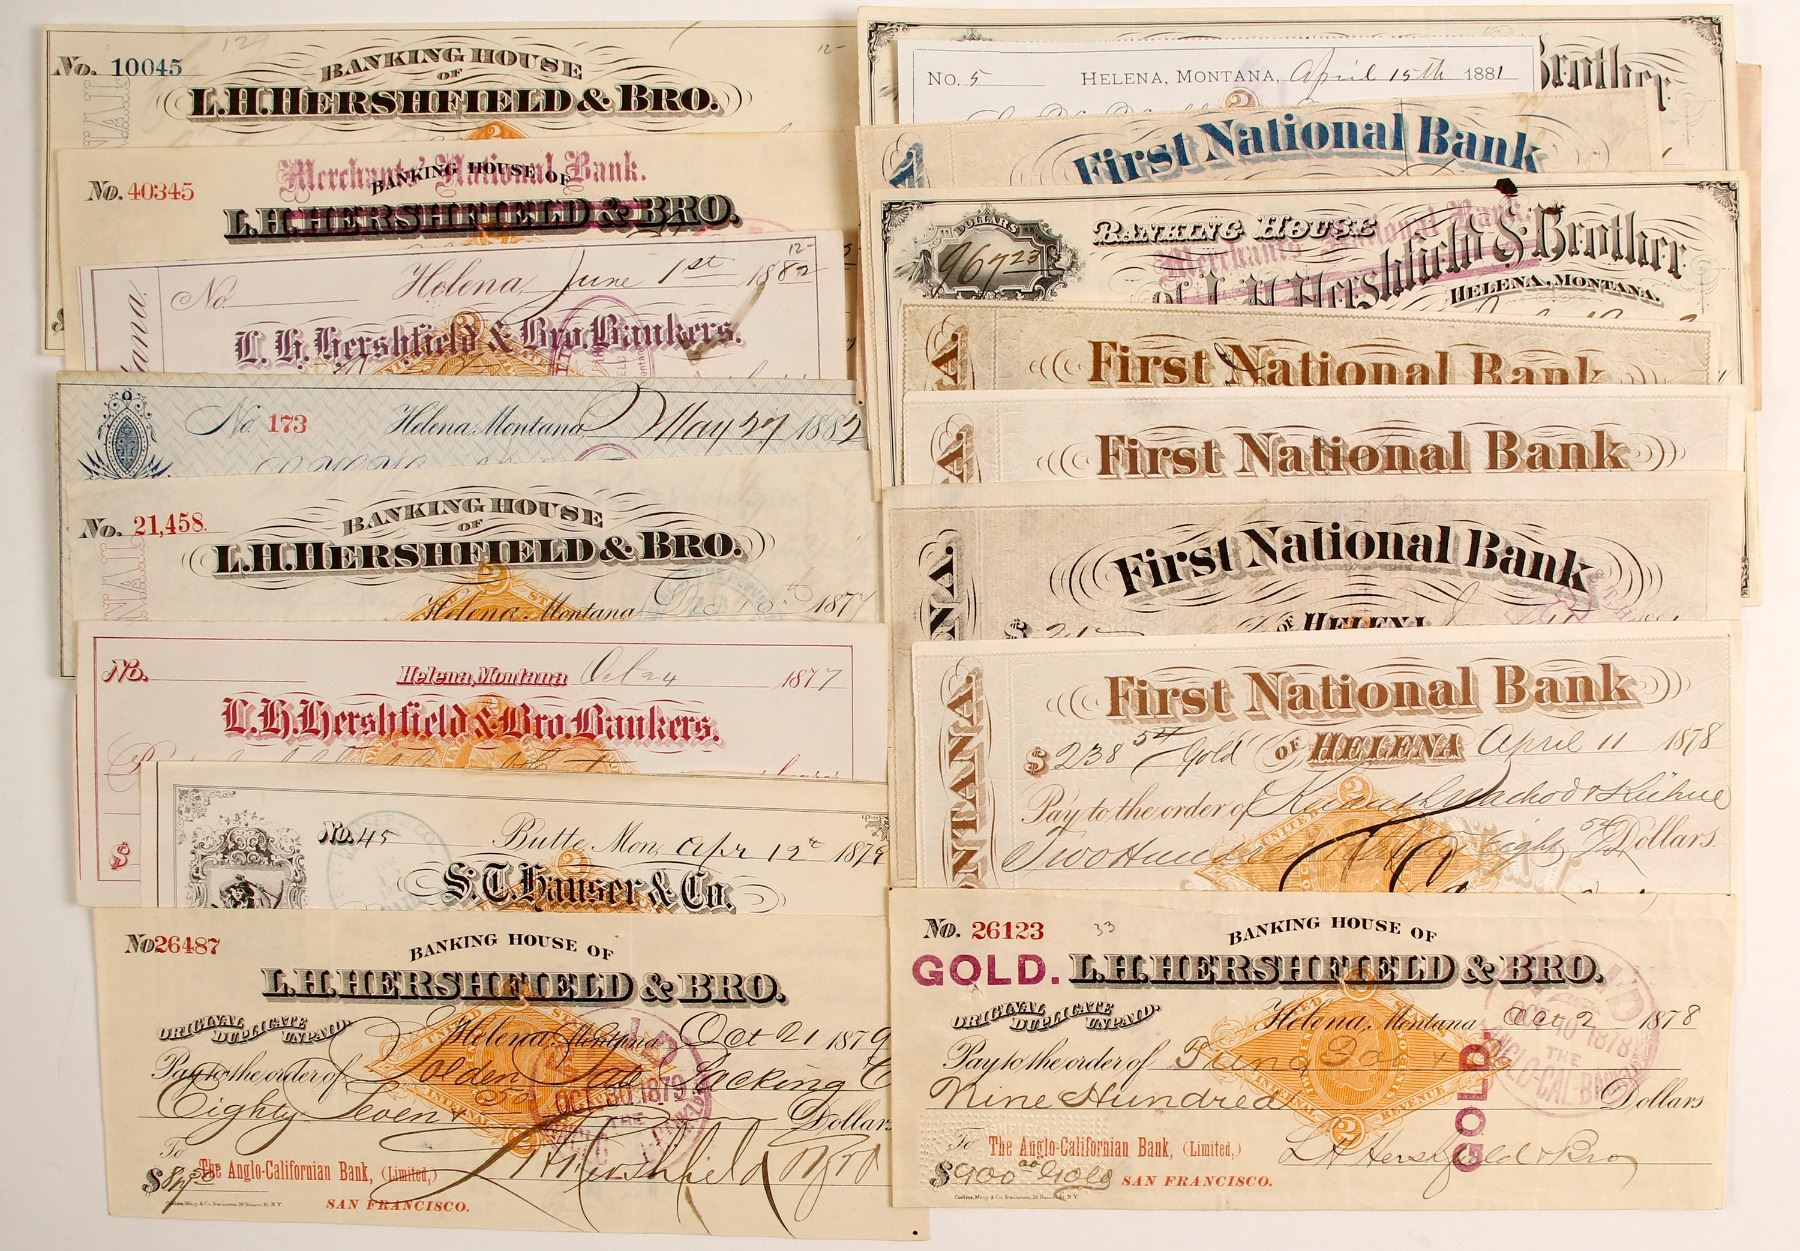 No. 10045
12
12-
BANKING HOUSE
OF
L.H. HERSHFIELD & BRO.
No. 40345
Merchants' National Bank.
BANKING HOUSE OF
L.H. HERSHFIELD & BRO.
12-
No.
Helena, June 1st 1882
L. H. Hershfield & Bro. Bankers.
No. 173
Helena Montana, May 27 1882
No. 21,458.
BANKING HOUSE
OF
L.H. HERSHFIELD & BRO.
Helena, Montana 1877
No.
Helena, Montana Oct 24 1877
L. H. Hershfield & Bro. Bankers.
$
No. 45
Butte, Mon, Apr 12th 1879
S. T. Hauser & Co.
No 26487
BANKING HOUSE OF
L.H. HERSHFIELD & BRO.
ORIGINAL
DUPLICATE
UNPAID
Helena, Montana Oct 21 1879
Pay to the order of Golden Gate Packing C
Eighty Seven & 50
Dollars
OCT 30 1879
THE
To
The Anglo-Californian Bank, (Limited,)
$87.50
SAN FRANCISCO.
Brother
No. 5 HELENA, MONTANA, April 15th 1881
First National Bank
DOLLARS
967 23
BANKING HOUSE
Merchants' National Bank.
of L. H. Hershfield & Brother
HELENA, MONTANA.
First National Bank
First National Bank
First National Bank
$
OF HELENA
First National Bank
$238 54 Gold OF HELENA April 11 1878
Pay to the order of
Two Hundred Eight 54 Dollars.
NTANA.
No. 26123
33
BANKING HOUSE OF
GOLD. L.H. HERSHFIELD & BRO.
ORIGINAL
DUPLICATE
UNPAID
Helena, Montana Oct 2 1878
Pay to the order of
Nine Hundred
Dollars
OCT 10 1878
THE
ANGLO-CAL. BANK
GOLD
To
The Anglo-Californian Bank, (Limited,)
L H Hershfield & Bro
$900 00 Gold
SAN FRANCISCO.